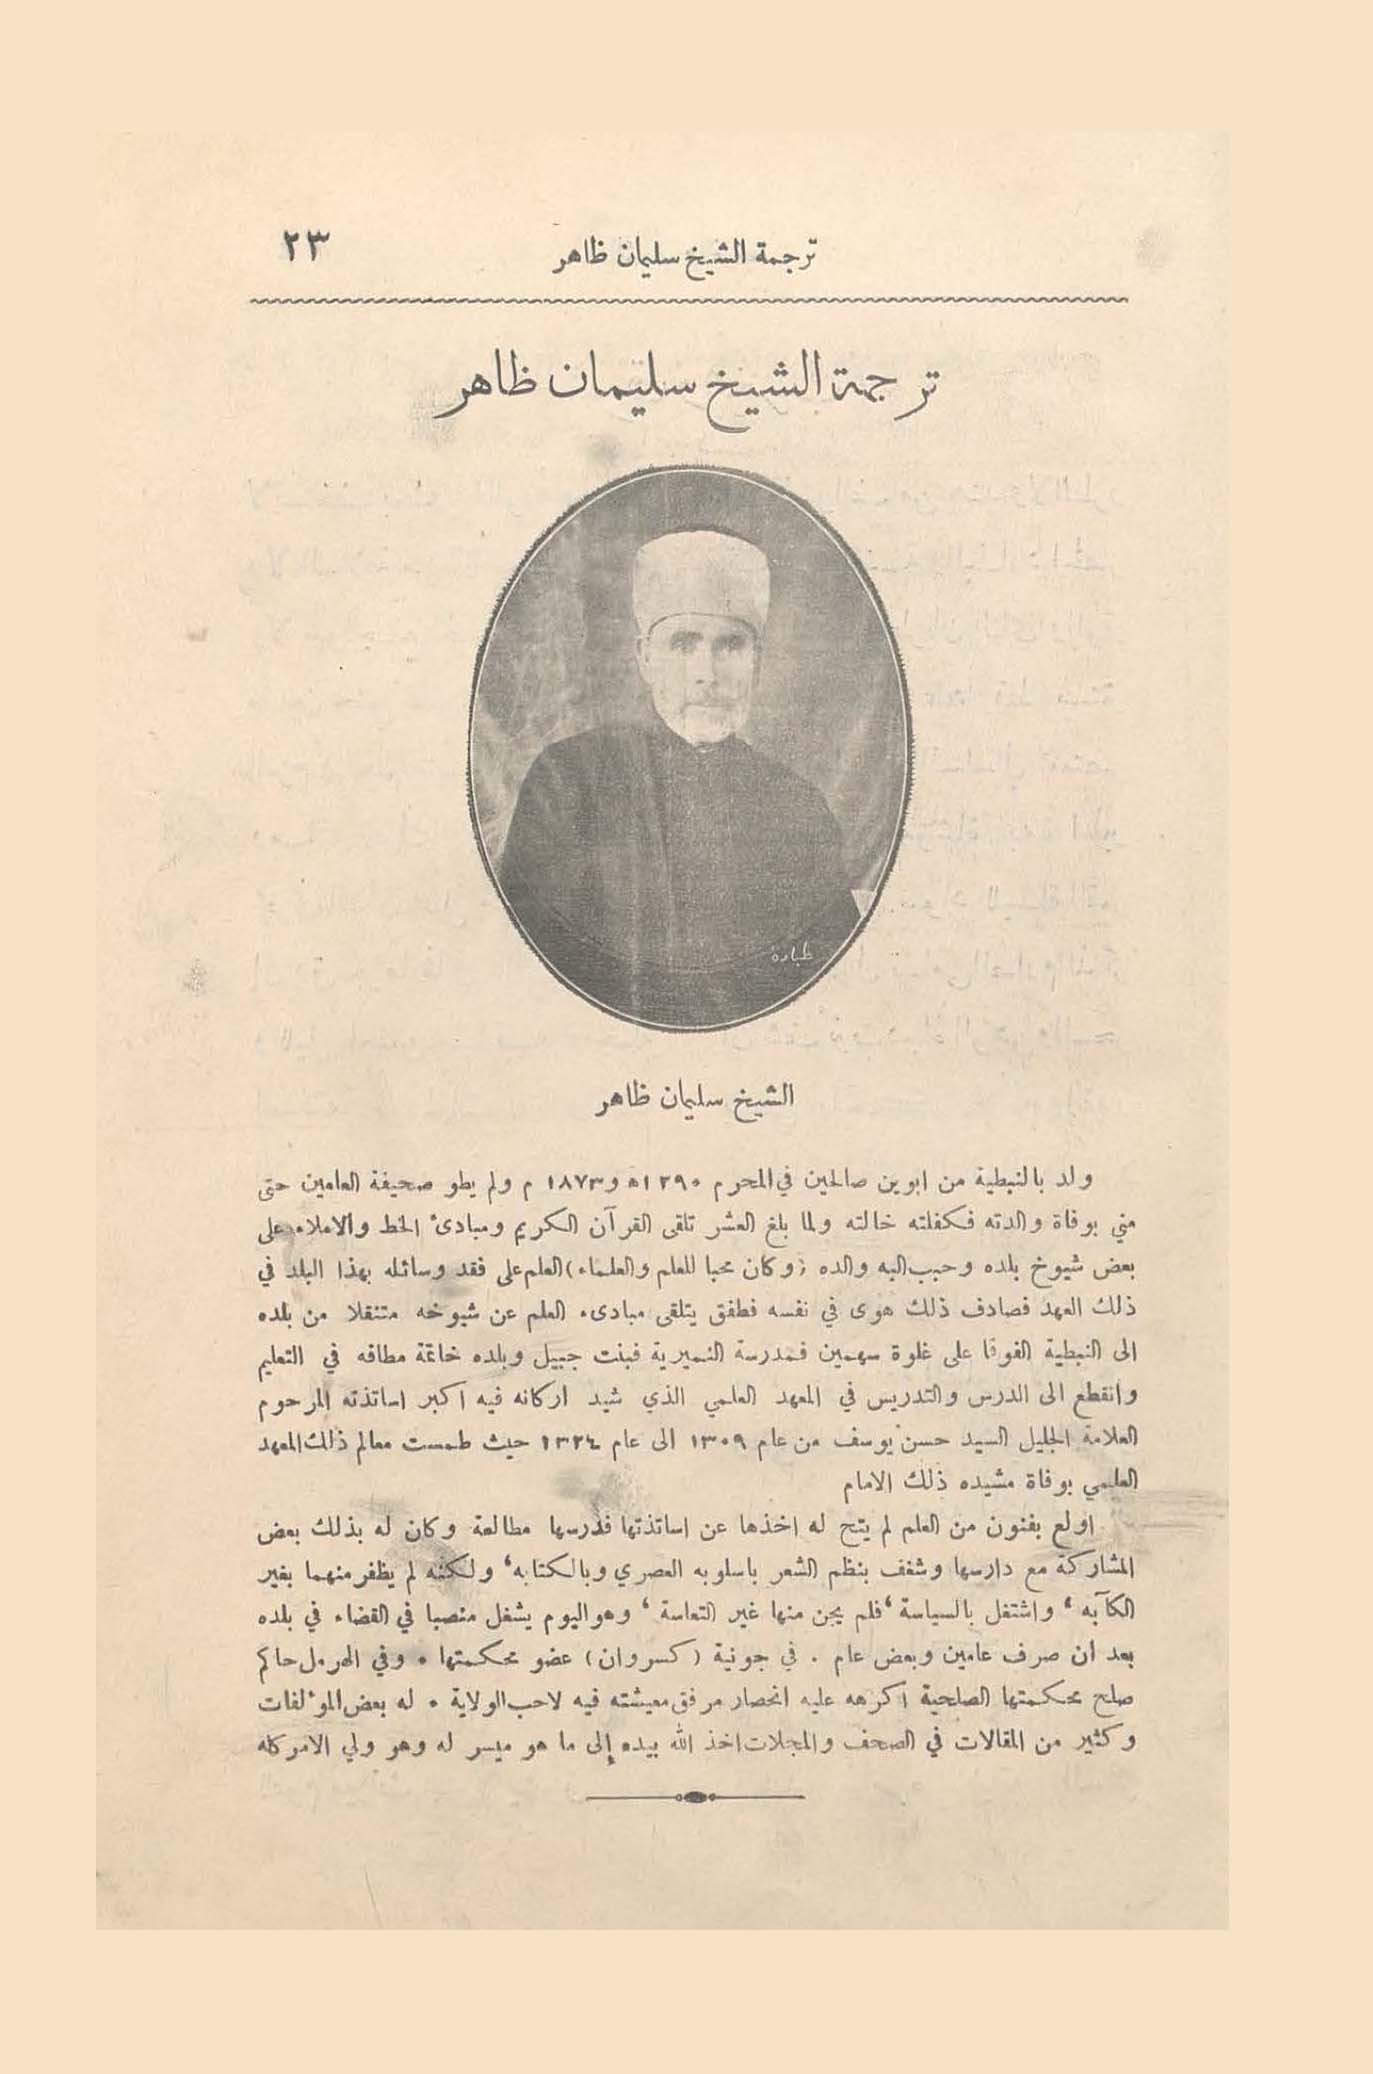 ترجمة الشيخ سليمان ظاهر
٢٣
ترجمة الشيخ سليمان ظاهر
طباره
الشيخ سليمان ظاهر
ولد بالنبطية من ابوين صالحين في المحرم ١٢٩٠ه و١٨٧٣ م ولم يطو صحيفة العامين حتى
مني بوفاة والدته فكفلته خالته ولما بلغ العشر تلقى القرآن الكريم ومبادئ الخط والاملاء على
بعض شيوخ بلده وحبب اليه والده (وكان محبا للعلم والعلماء) العلم على فقد وسائله بهذا البلد في
ذلك العهد فصادف ذلك هوى في نفسه فطفق يتلقى مبادىء العلم عن شيوخه متنقلا من بلده
الى النبطية الفوقا على غلوة سهمين فمدرسة النميرية فبنت جبيل وبلده خاتمة مطافه في التعليم
وانقطع الى الدرس والتدريس في المعهد العلمي الذي شيد اركانه فيه اكبر اساتذته المرحوم
العلامة الجليل السيد حسن يوسف من عام ١٣٠٩ الى عام ١٣٢٤ حيث طمست معالم ذلك المعهد
العلمي بوفاة مشيده ذلك الامام
اولع بفنون من العلم لم يتح له اخذها عن اساتذتها فدرسها مطالعة وكان له بذلك بعض
المشاركة مع دارسها وشغف بنظم الشعر باسلوبه العصري وبالكتابه ، ولكنه لم يظفر منهما بغير
الكآبه ، واشتغل بالسياسة ، فلم يجن منها غير التعاسة ، وهو اليوم يشغل منصبا في القضاء في بلده
بعد ان صرف عامين وبعض عام . في جونية (كسروان) عضو محكمتها . وفي الهرمل حاكم
صلح محكمتها الصلحية اكرهه عليه انحصار مرفق معيشته فيه لاحب الولاية . له بعض المؤلفات
وكثير من المقالات في الصحف والمجلات اخذ الله بيده إلى ما هو ميسر له وهو ولي الامر كله